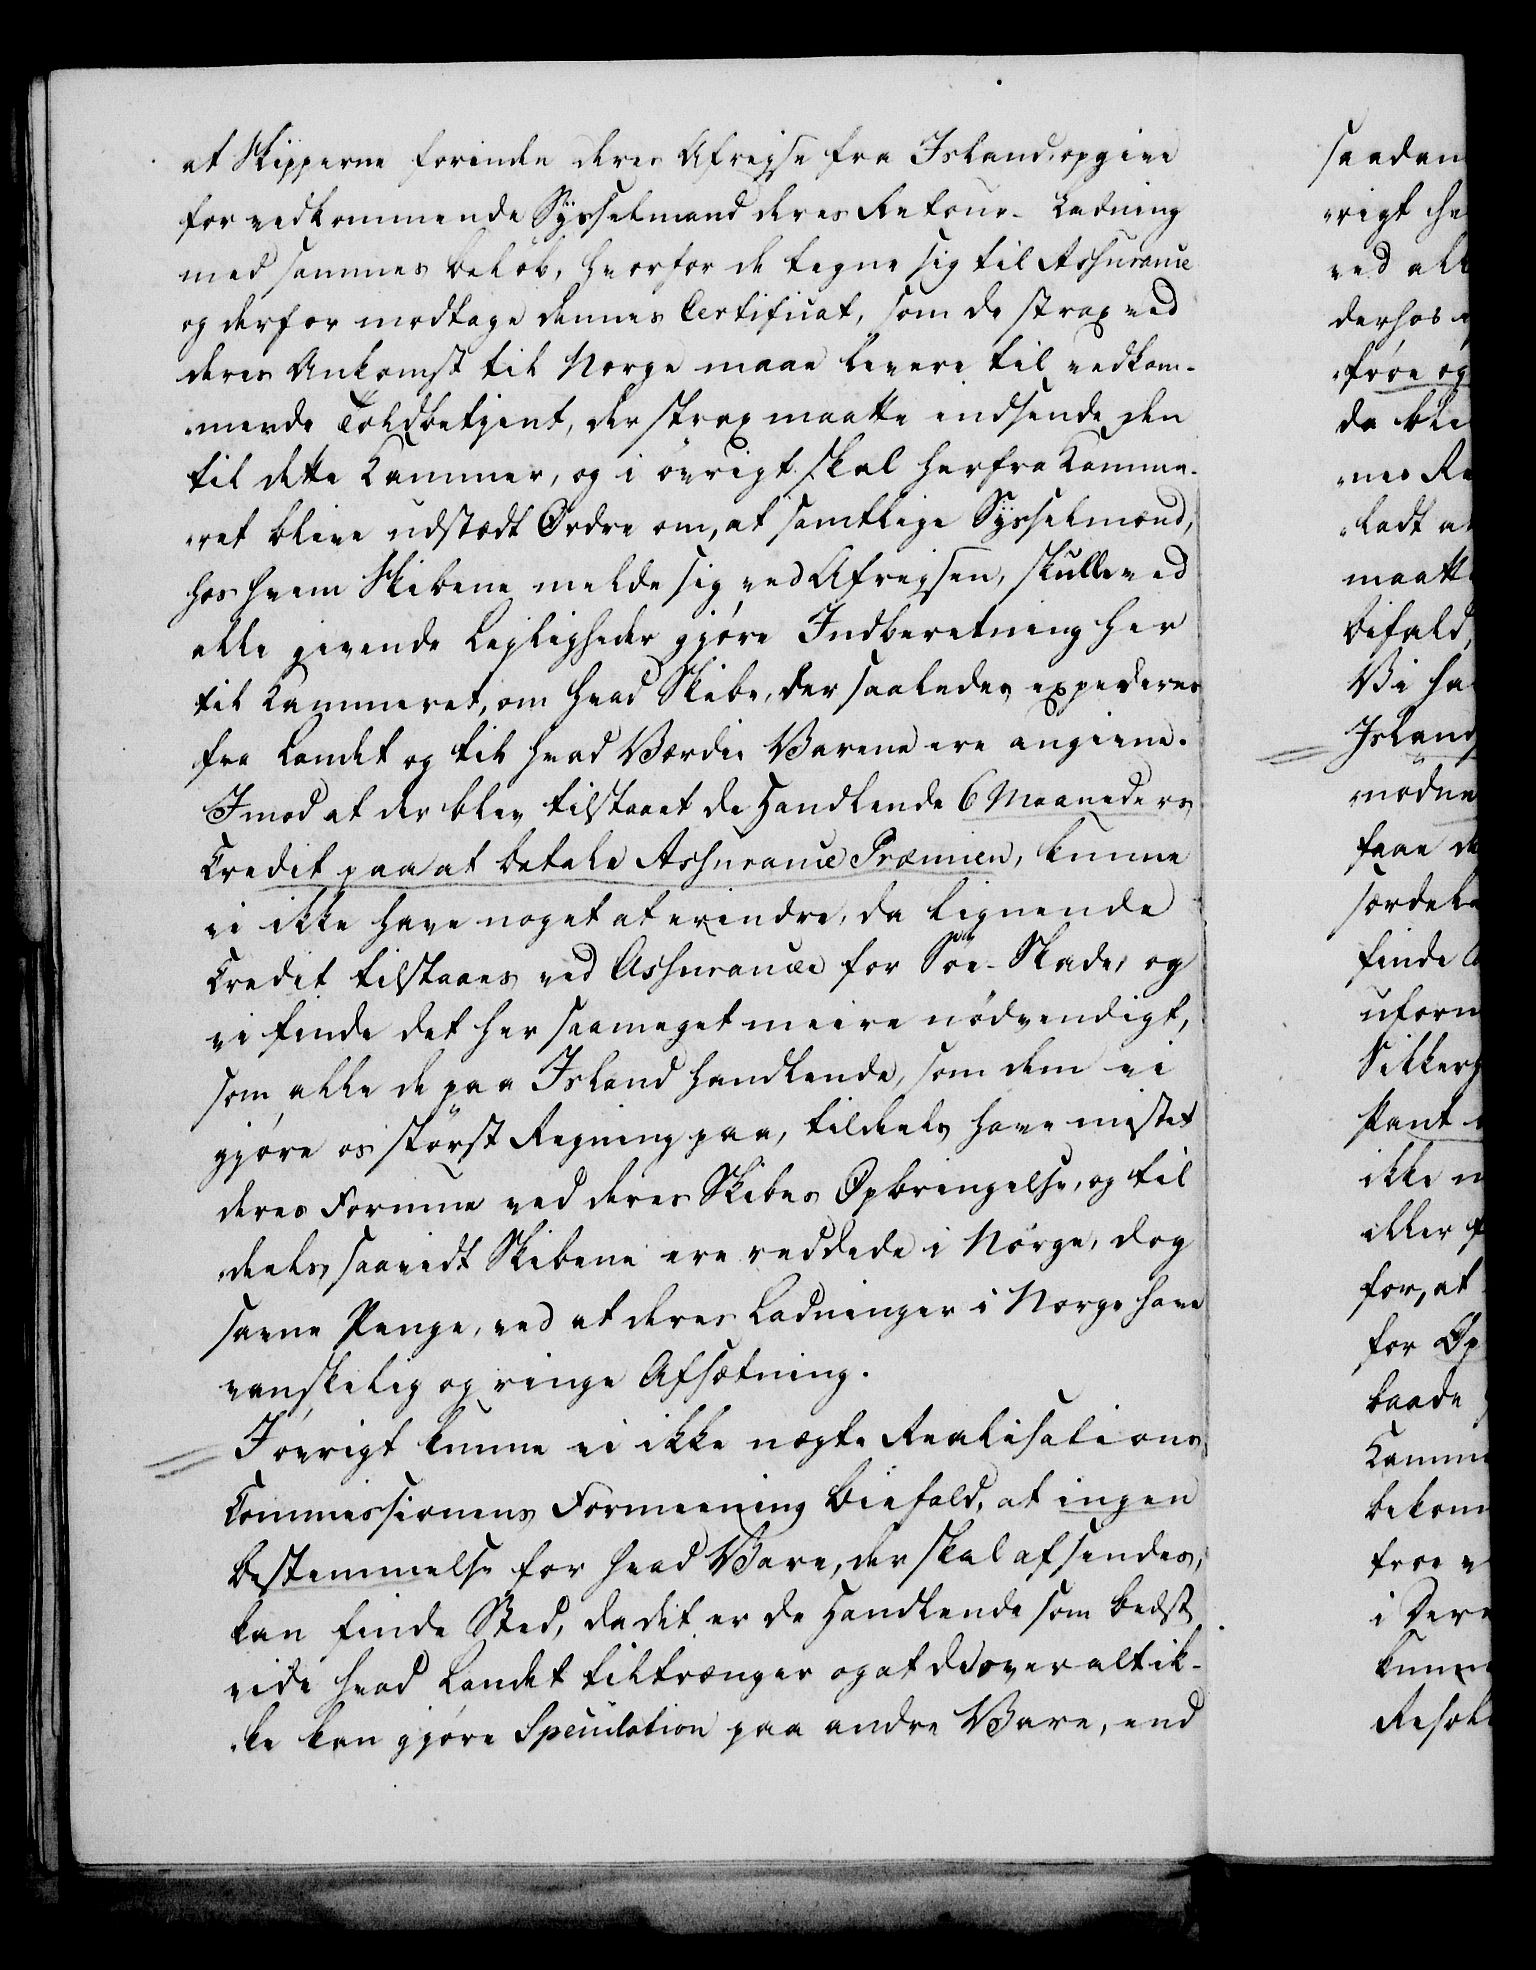 at Skipperne forinden deres Afreyse fra Island, opgive
for vedkommende Sysselmand deres Retour-Ladning
med sammes beløb, hvorfor de tegne sig til Assurance
og derfor modtage dennes Certificat, som de strax ved
deres Ankomst til Norge maae levere til vedkom-
mende Toldbetjent, der strax maatte indsende den
til dette Kammer, og i øvrigt skal herfra Kamme-
ret blive udstædt Ordre om, at samtlige Sysselmænd,
hos hvem Skibene melde sig ved Afreysen, skulle ved
alle givende Leyligheder gjøre Indberetning her
til Kammeret, om hvad Skibe, der saaledes expederes
fra Landet og til hvad Værdie Varene ere angivne.
Imod at der blev tilstaaet de Handlende 6 Maaneders
Credit paa at betale Assurance Præmien, kunne
vi ikke have noget at erindre, da lignende
Credit tilstaaes ved Assurance for Søe-Skade, og
vi finde det her saameget meere nødvendigt,
som alle de paa Island handlende, som dem vi
gjøre os størst Regning paa, tildeels have mistet
deres Formue ved deres Skibes Opbringelse, og til
deels, saavidt Skibene ere reddede i Norge, dog
savne Penge, ved at deres Ladninger i Norge have
vanskelig og ringe Afsætning.
I øvrigt kunne vi ikke nægte Realisations
Commissionens Formeening Biefald, at ingen
bestemmelse for hvad Vare, der skal afsendes,
kan finde Sted, da det er de Handlende som bedst
vide hvad Landet tiltrænger og at de overalt ik-
ke kan gjøre Speculation paa andre Vare, end
saadan
rigt
ved all
derhos
da
ladt
maatte
bifald,
Vi ha
Island
faae
finde
Pant
ikke
eller
for, at
for Op
baade
Kamm
bekom
i